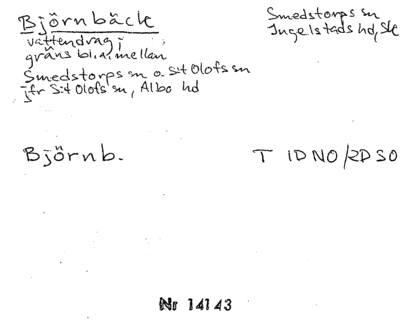 Björnbäck
vattendrag;
gräns bl.a. mellan
Smedstorps sn o. S:t Olofs sn
jfr S:t Olofs sn, Albo hd
Smedstorps sn
Ingelstads hd, Sk
Björnb.
T 1D NO/2D SO
Nr 14143